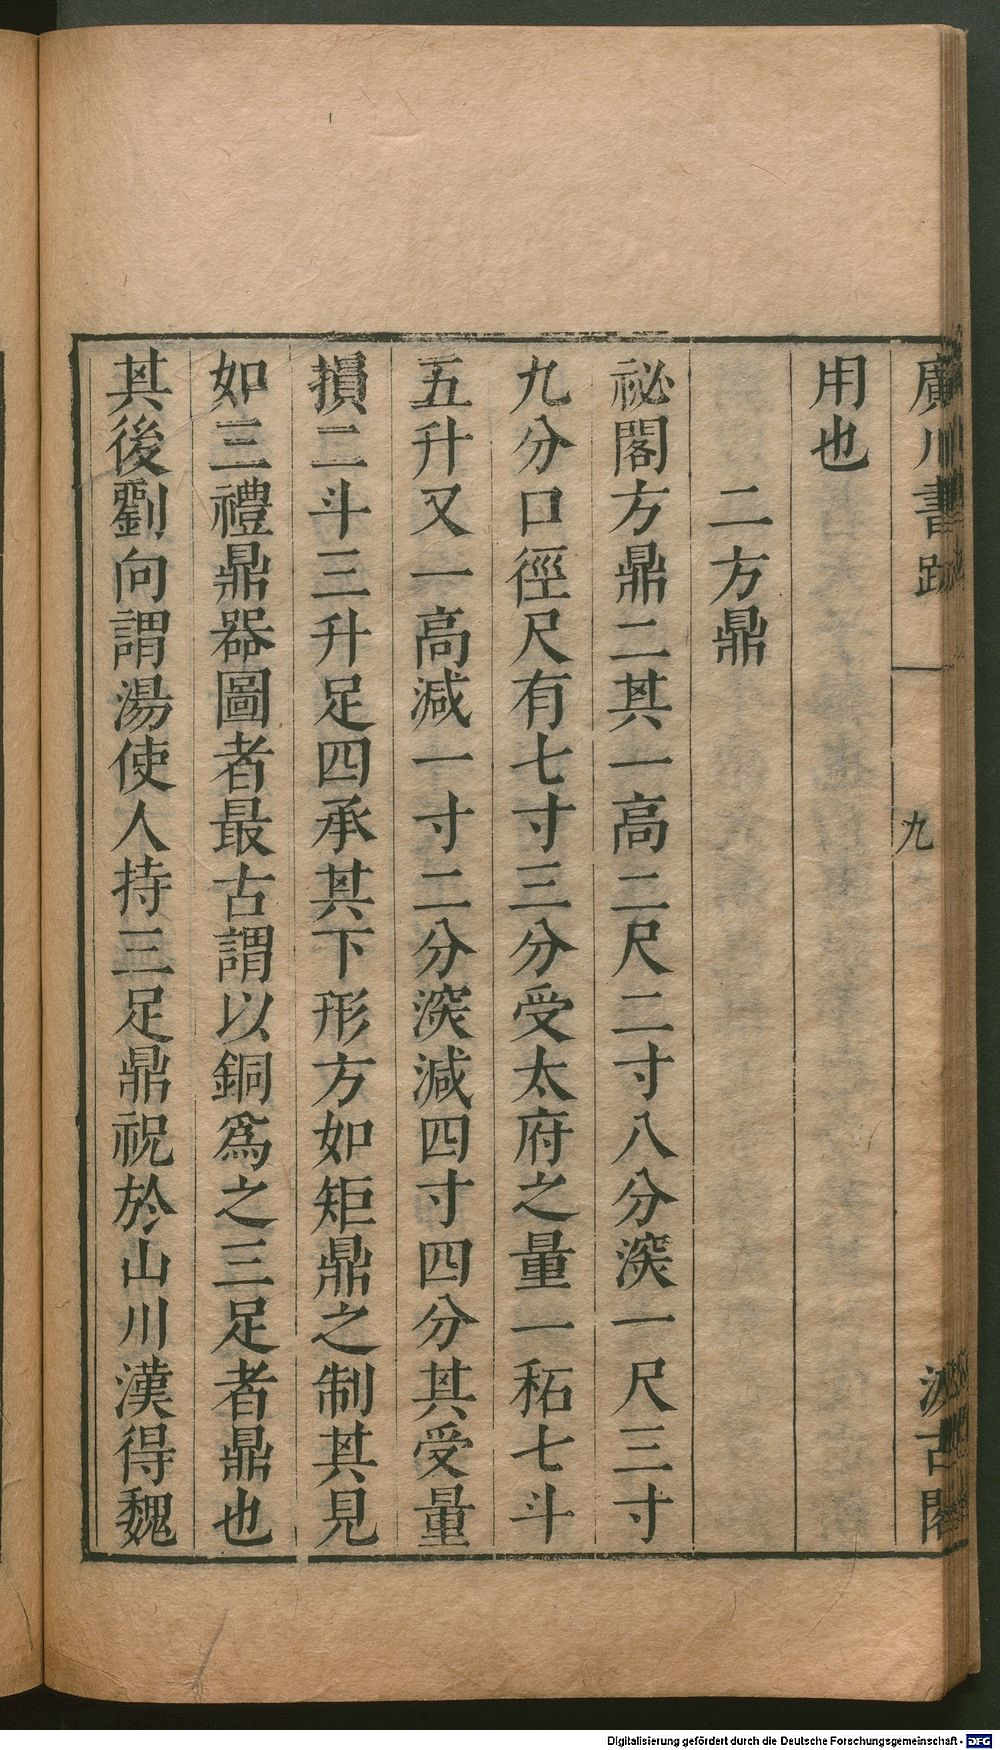 廣川書跋 一 九 汲古閣
用也
二方鼎
祕閣方鼎二其一高二尺二寸八分深一尺三寸
九分口徑尺有七寸三分受太府之量一秳七斗
五升又一高減一寸二分深減四寸四分其受量
損二斗三升足四承其下形方如矩鼎之制其見
如三禮鼎器圖者最古謂以銅爲之三足者鼎也
其後劉向謂湯使人持三足鼎祝於山川漢得魏
Digitalisierung gefördert durch die Deutsche Forschungsgemeinschaft - DFG